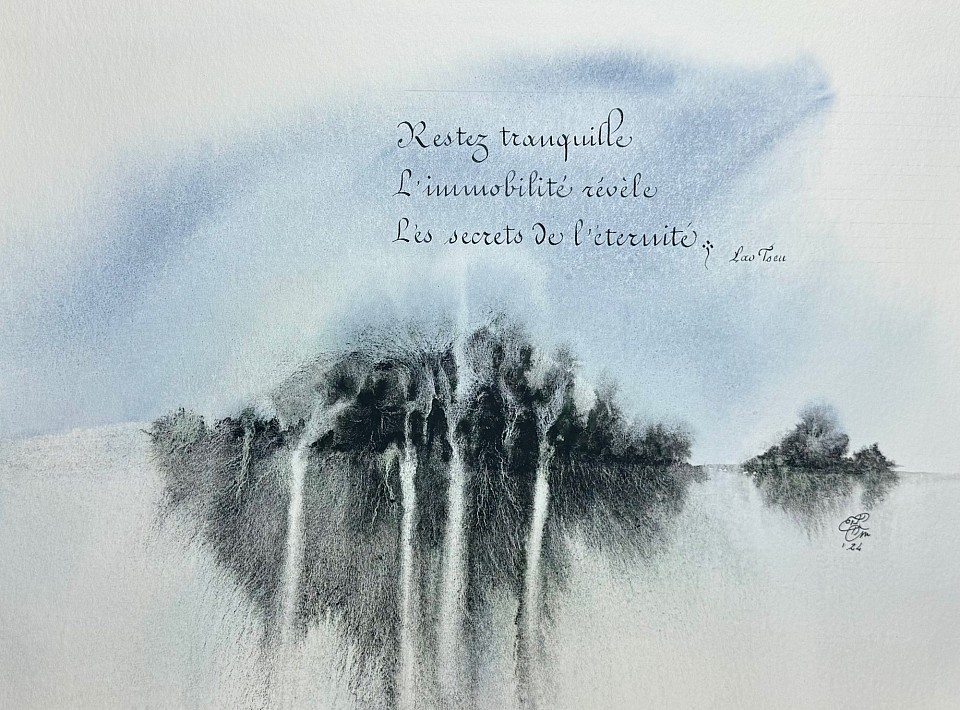 Restez tranquille
L'immobilité révèle
Les secrets de l'éternité.
Lao Tseu
'24